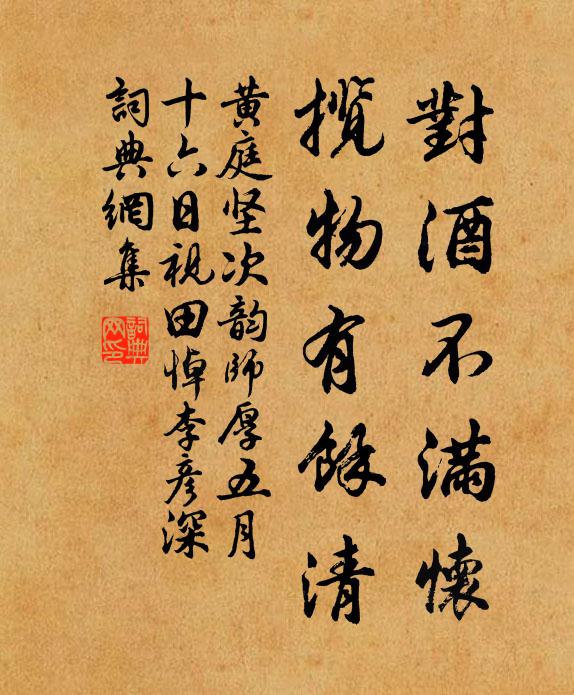 對酒不滿懷
攬物有餘清
黄庭坚次韵師厚五月
十六日視田悼李彦深
詞典網集
詞典网印